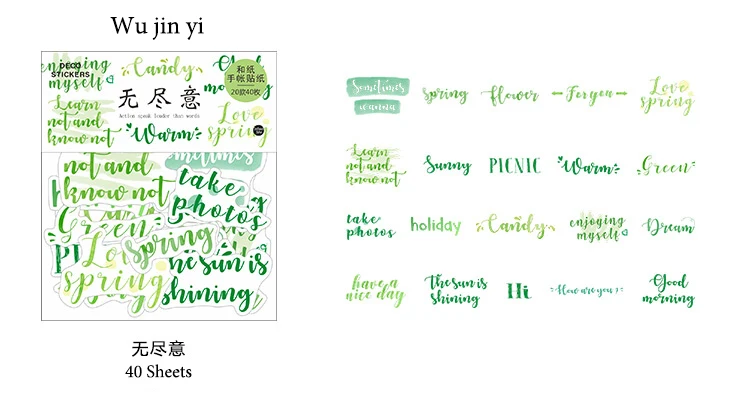 Wu jin yi
DECO
STICKERS
enjoying
myself
Candy
Good
和纸
手帐贴纸
20款40枚
无尽意
Action speak louder than words
Learn
not and
know not
Warm
Love
spring
not and
know not
take
photos
Green
Lo
spring
spring
the sun is
shining
无尽意
40 Sheets
Sometimes
wanna
spring
flower
For you
Love
spring
Learn
not and
know not
Sunny
PICNIC
Warm
Green
take
photos
holiday
Candy
enjoying
myself
Dream
have a
nice day
The sun is
shining
Hi
How are you?
Good
morning